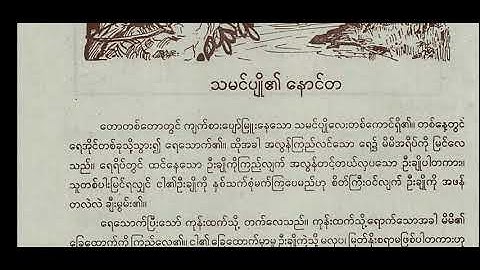 သမင်ပျို၏ နောင်တ
တောတစ်တောတွင် ကျက်စားပျော်မြူးနေသော သမင်ပျိုလေးတစ်ကောင်ရှိ၏။ တစ်နေ့တွင်
ရေအိုင်တစ်ခုသို့သွား၍ ရေသောက်၏။ ထိုအခါ အလွန်ကြည်လင်သော ရေ၌ မိမိအရိပ်ကို မြင်လေ
သည်။ ရေရိပ်တွင် ထင်နေသော ဦးချိုကိုကြည့်လျက် အလွန်တင့်တယ်လှပသော ဦးချိုပါတကား။
သူတစ်ပါးမြင်ရလျှင် ငါ၏ဦးချိုကို နှစ်သက်စုံမက်ကြပေမည်ဟု စိတ်ကြီးဝင်လျက် ဦးချိုကို အဖန်
တလဲလဲ ချီးမွမ်း၏။
ရေသောက်ပြီးသော် ကုန်းထက်သို့ တက်လေသည်။ ကုန်းထက်သို့ရောက်သောအခါ မိမိ၏
ခြေထောက်ကို ကြည့်လေ၏။ ငါ၏ ခြေထောက်မှာမူ ဦးချိုကဲ့သို့ မလှပ၊